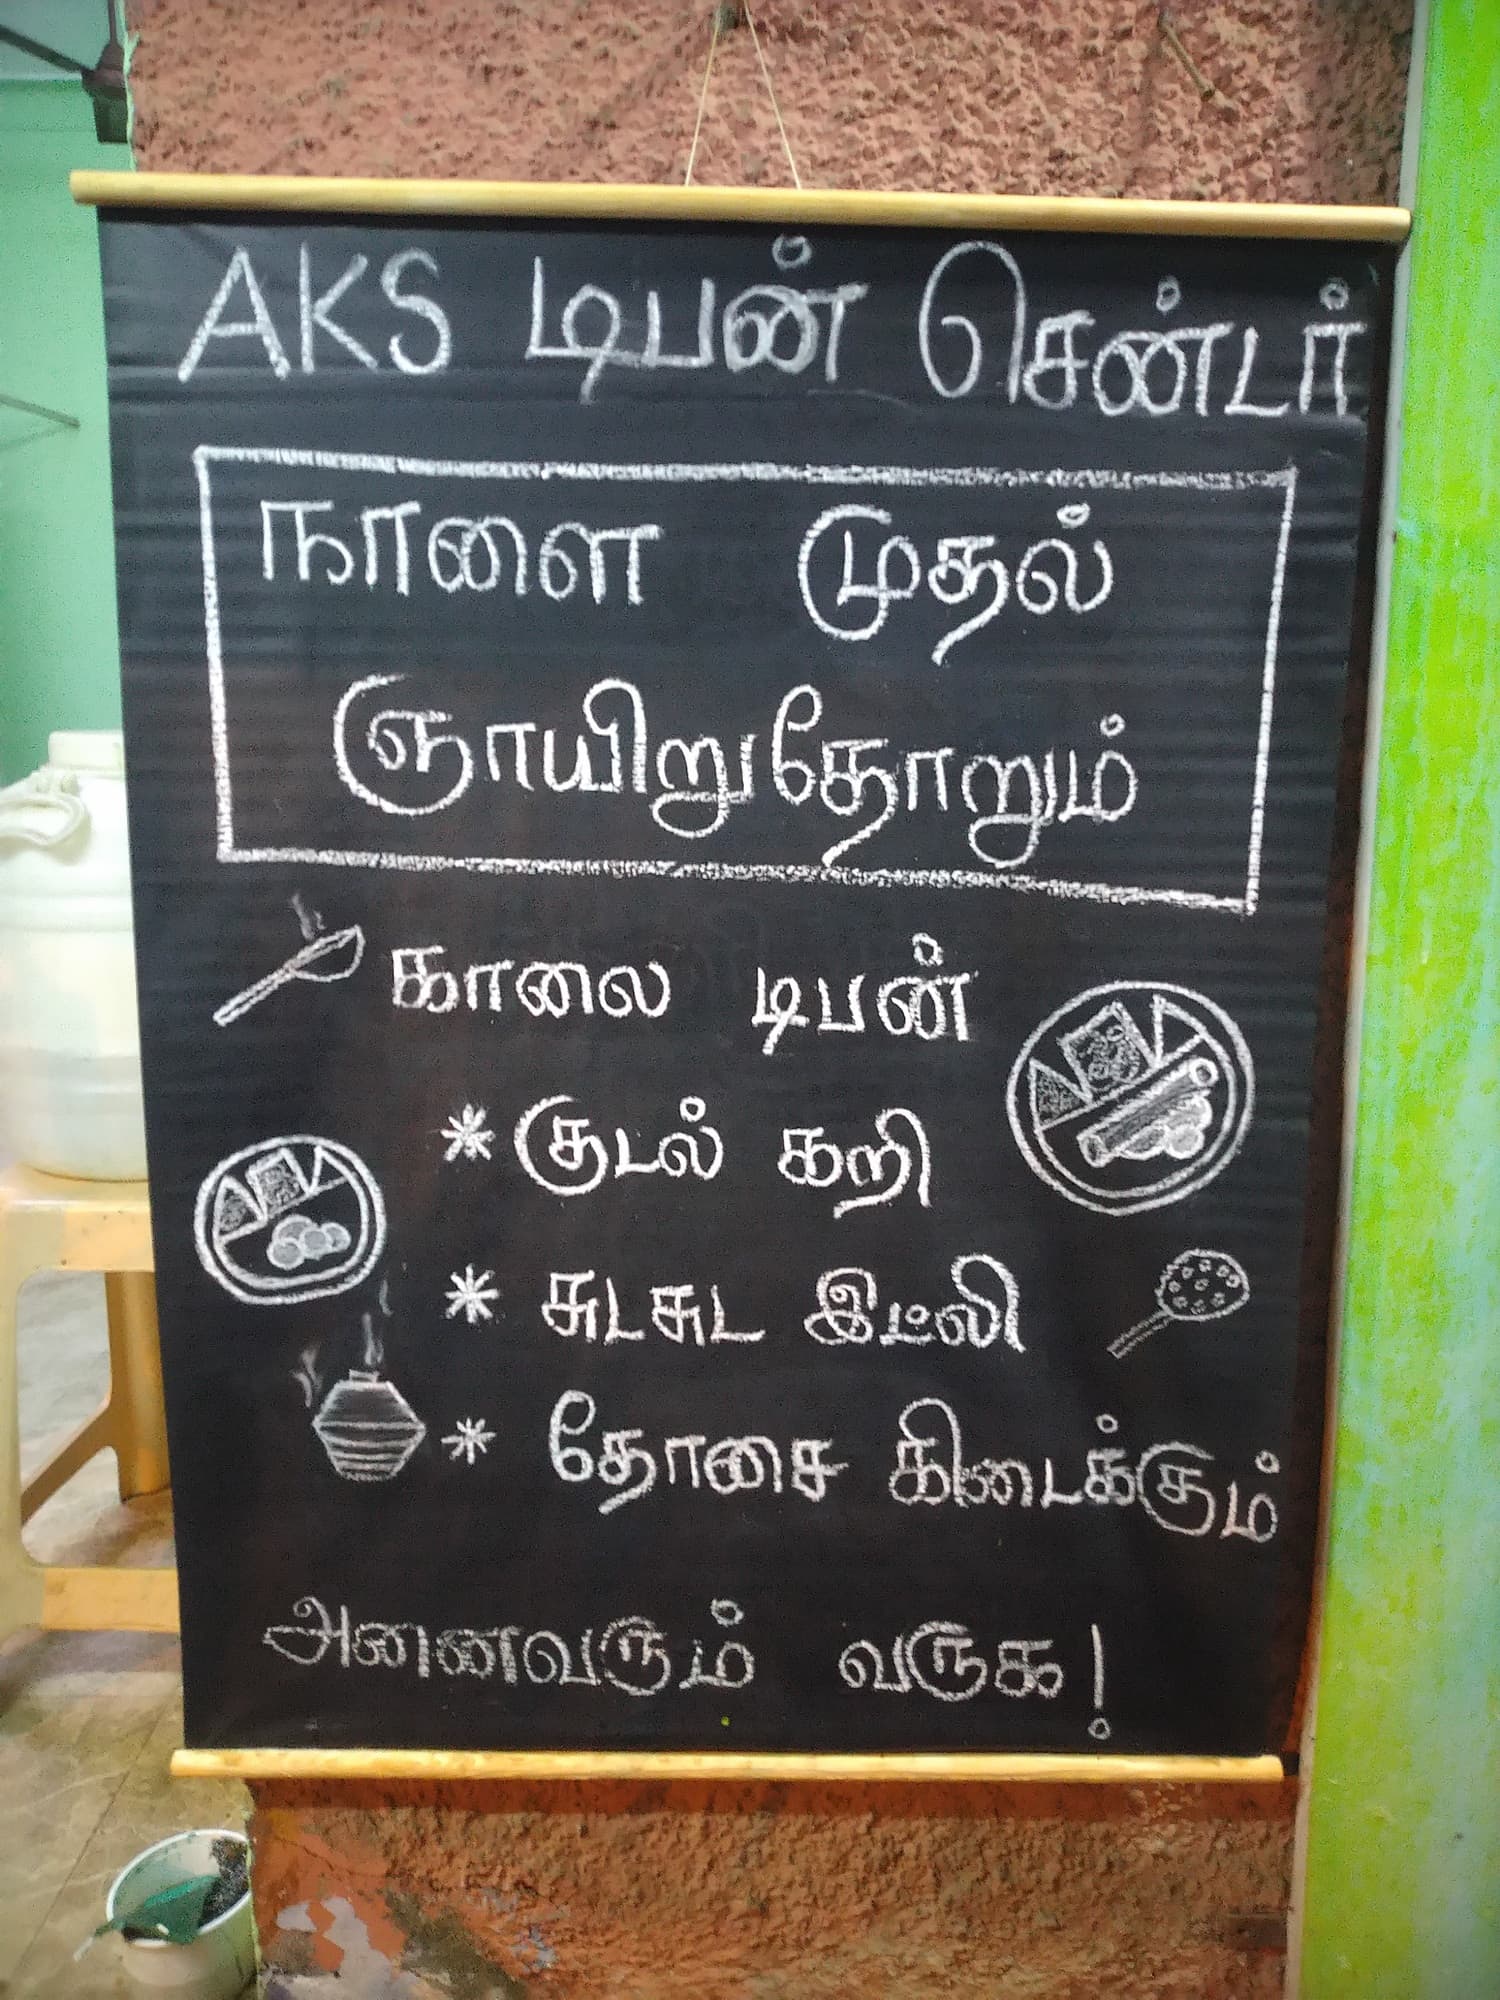 AKS டிபன் செண்டர்
நாளை முதல்
ஞாயிறுதோறும்
காலை டிபன்
* குடல் கறி
* சுடசுட இட்லி
* தோசை கிடைக்கும்
அனைவரும் வருக!